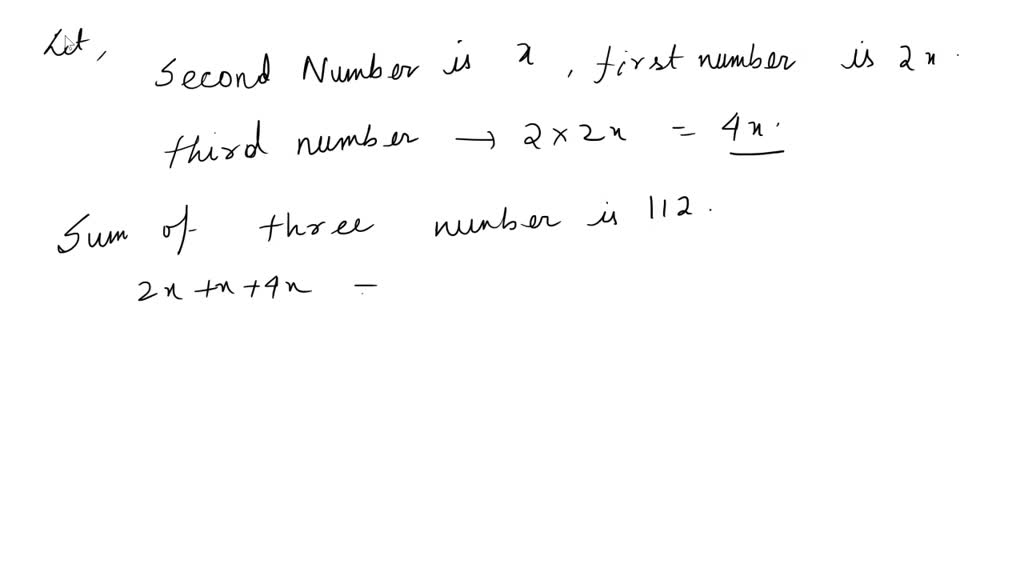 Let,
Second Number is x, first number is 2x.
third number → 2 × 2x = 4x.
Sum of three number is 112.
2x + x + 4x =